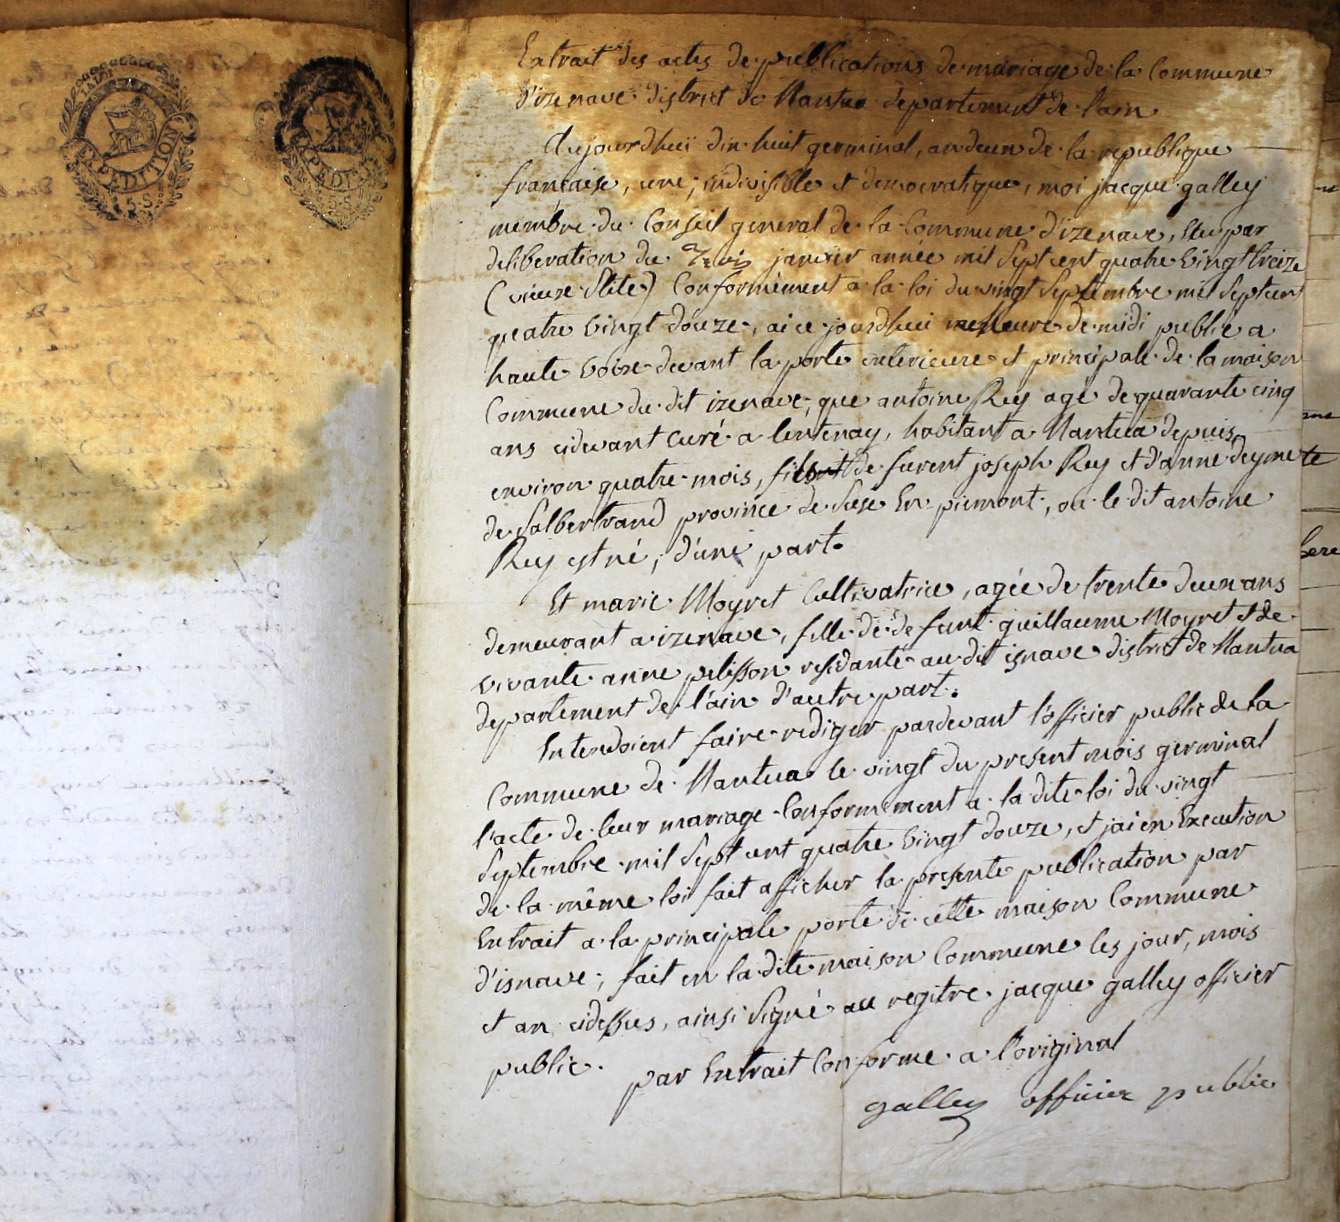 EXPEDITION
5.S.
EXPEDIT
5.S
Extrait des actes de publications de mariage de la Commune
d'izenave district de Nantua departement de l'ain
Aujourdhui dix huit germinal, an deux de la republique
française, une, indivisible et democratique, moi jacque galley
membre du Conseil general de la Commune d'izenave, Elu par
deliberation du janvier année mil sept cent quatre vingt treize
(vieux stile) Conformément a la loi du vingt septembre mil sept cent
quatre vingt douze, ai ce jourdhui heure de midi publié a
haute voix devant la porte exterieure et principale de la maison
Commune du dit izenave, que antoine Rey agé de quarante cinq
ans cidevant curé a lentenay, habitant a Nantua depuis
environ quatre mois, fils de furent joseph Rey et d'anne deymete
de salbertrand province de suse En piemont, ou le dit antoine
Rey est né, d'une part.
Et marie Moyret Cultivatrice, agée de trente deux ans
demeurant a izenave, fille de defunt guillaume Moyret et de
vivante anne pelisson residante au dit isnave district de Nantua
departement de l'ain d'autre part.
Entendoient faire rediger pardevant l'officier public de la
Commune de Nantua le vingt du present mois germinal
l'acte de leur mariage Conformement a la dite loi du vingt
septembre mil sept cent quatre vingt douze, et jai en Execution
de la même loi fait afficher la presente publication par
Extrait a la principale porte de cette maison Commune
d'isnave; fait en la dite maison Commune les jour, mois
et an cidessus, ainsi signé au regitre jacque galley officier
public.
par Extrait Conforme a l'original
galley officier public